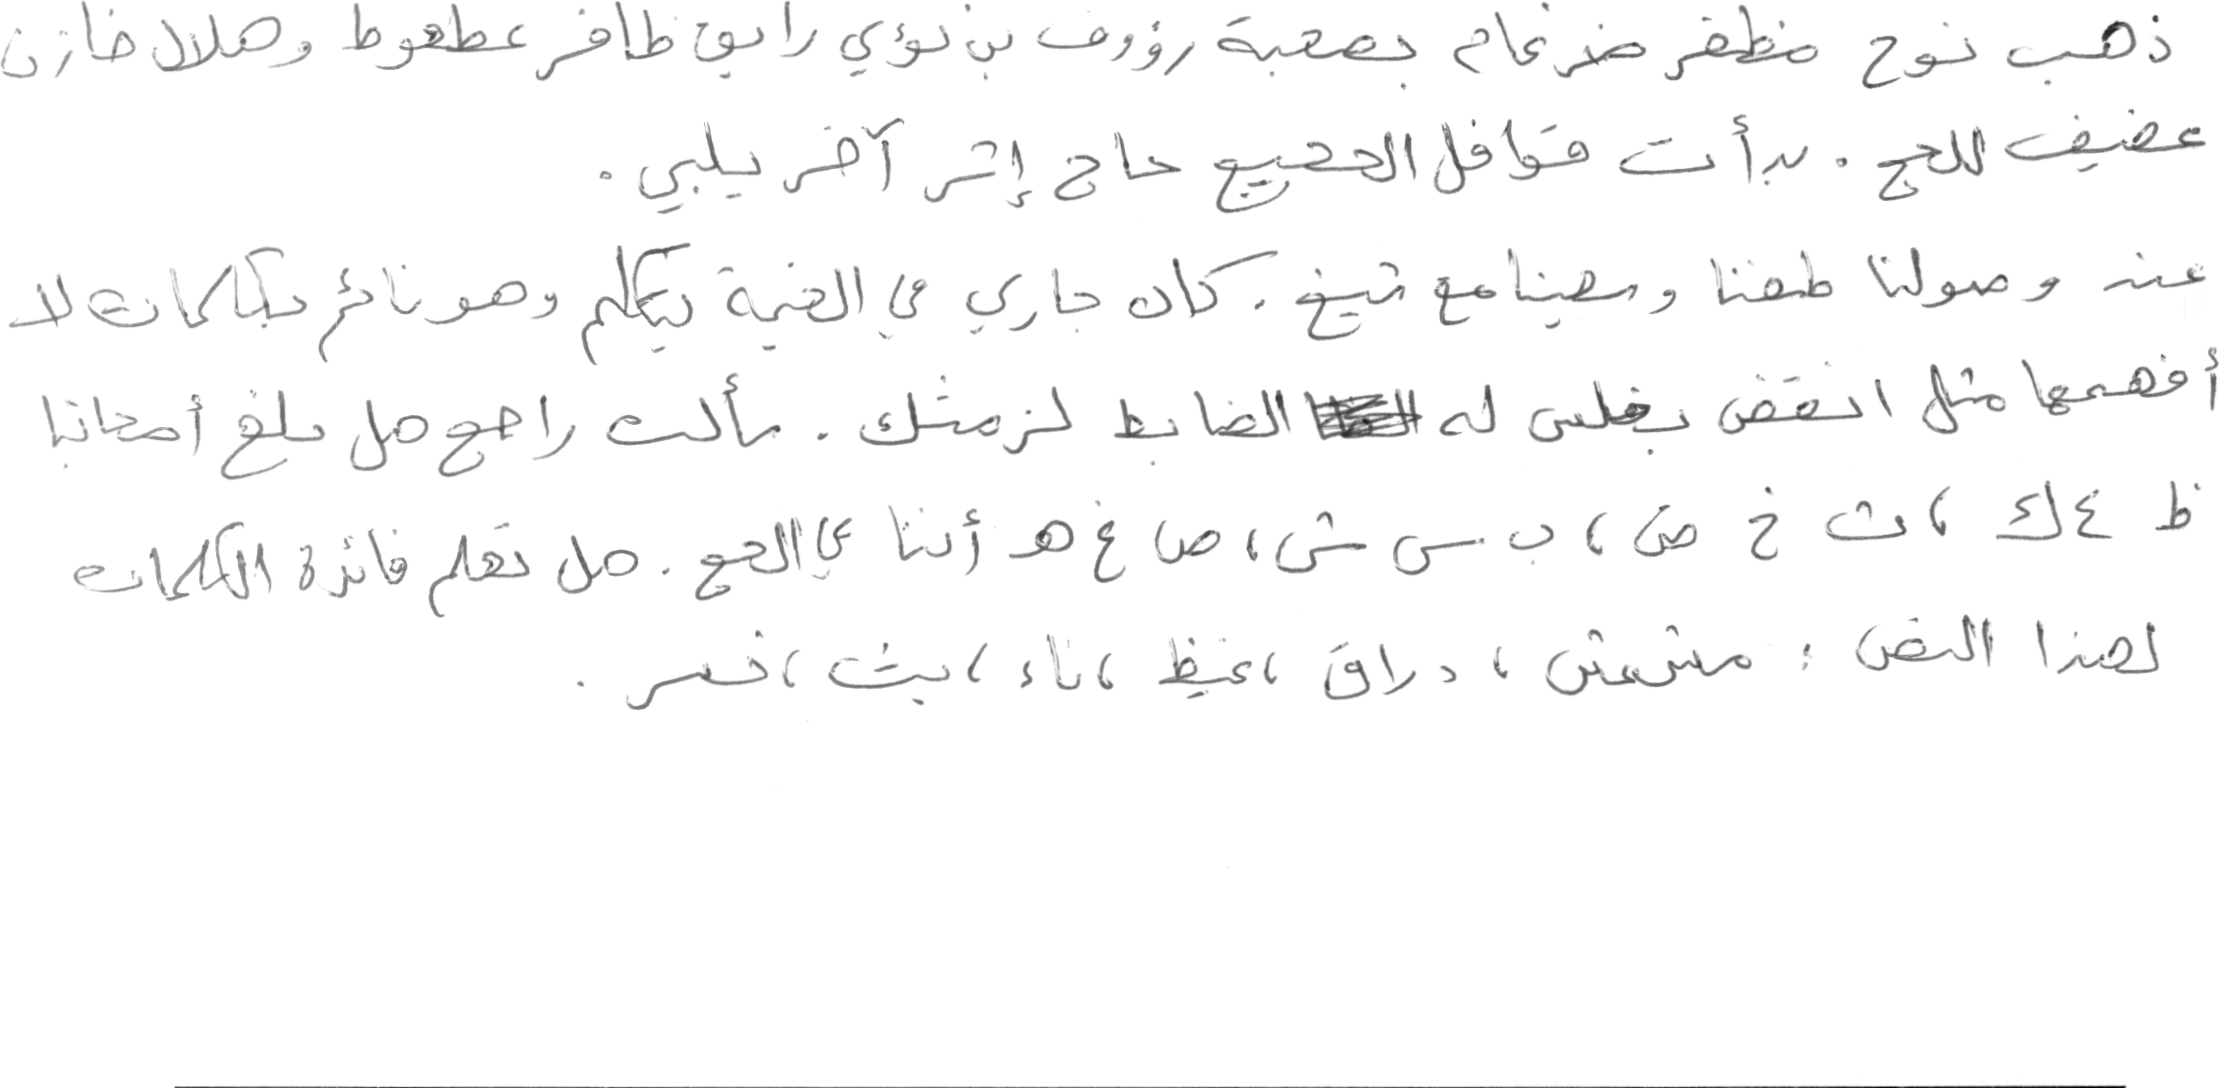 ذهب نوح مظفر ضرغام بصعبة رؤوف بن لؤي رابق ظافر عطعوط وهلال خازن
عضيف للحج . بدأت قوافل الحجيج حاج إثر آخر يلبي .
عند وصولنا طفنا وسعينا مع شيخ . كان جاري في الخيمة يتكلم وهو نائم بكلمات لا
أفهمها مثل انقض بغلس له الضابط لزمثك . سألت راجح هل بلغ أصحابنا
ظ ع ك ، ث خ ض ، ب س ش ، ص غ هـ أننا في الحج . هل تعلم فائدة الكلمات
لهذا النص : مشمش ، دراق ، غيظ ، ناء ، بث ، خسر .